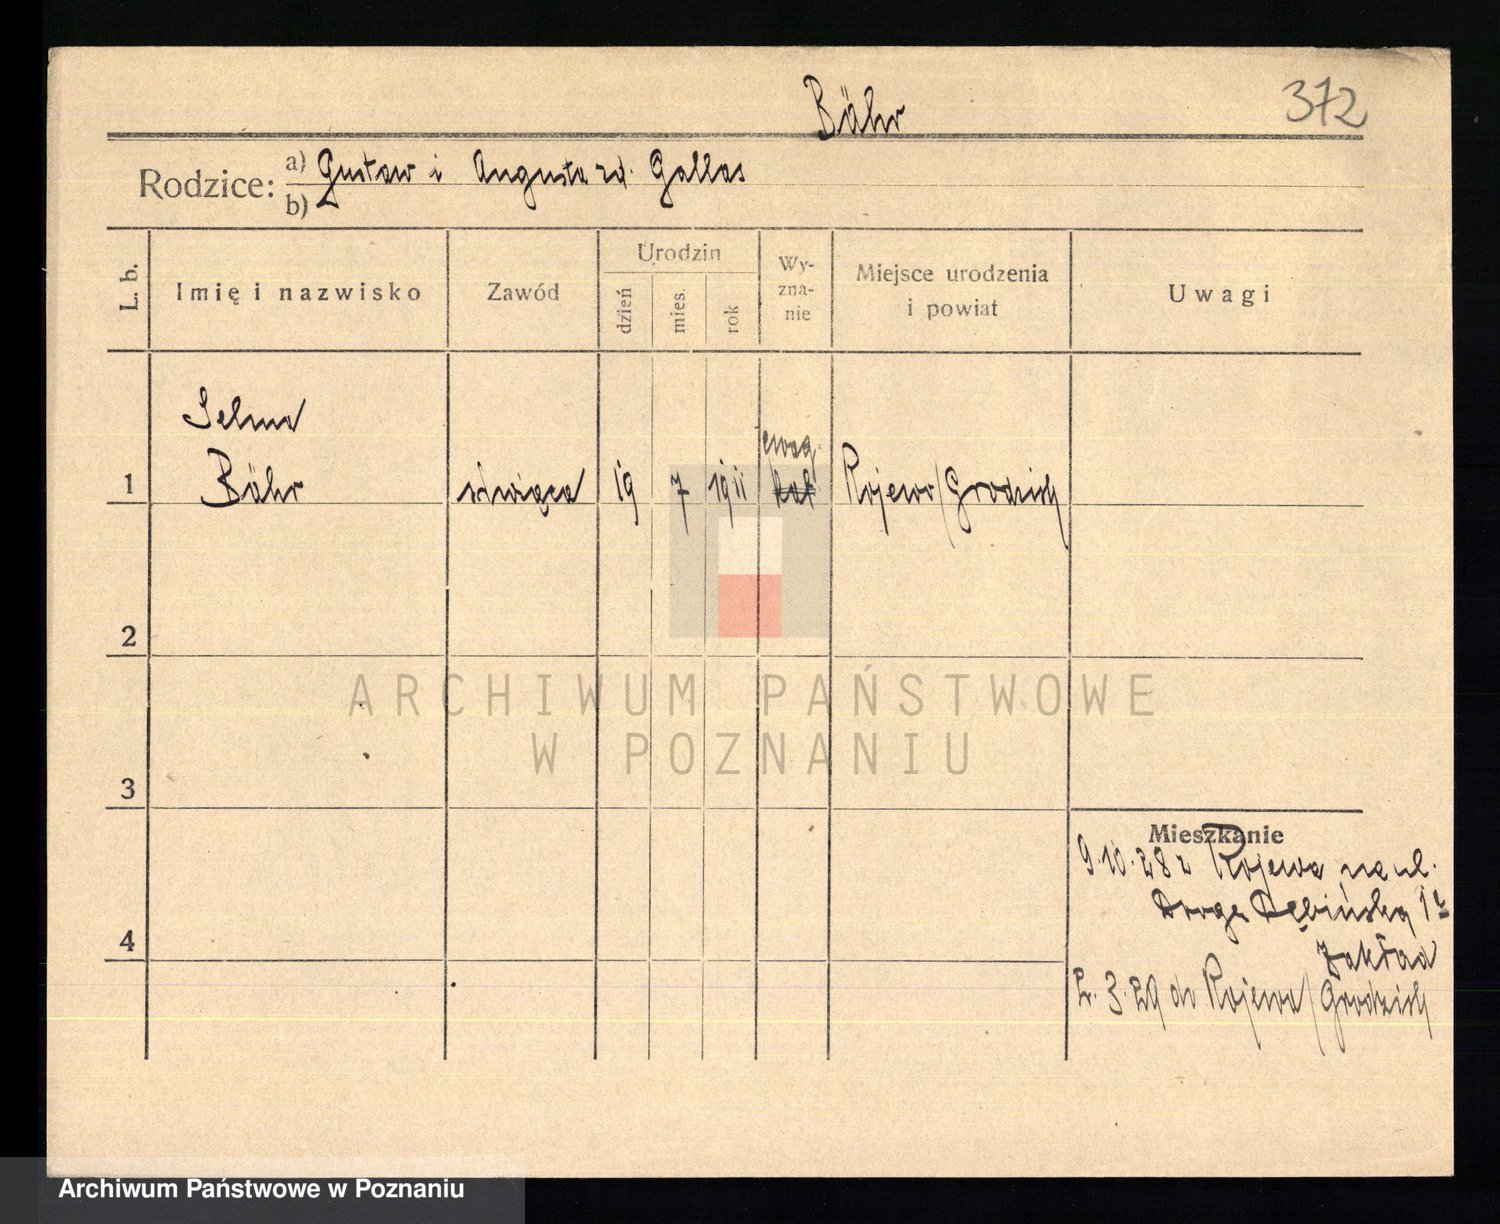 Bähr
372
Rodzice: a) Gustaw i Augusta zd. Gallas
b)
L. b.
Imię i nazwisko
Zawód
Urodzin
dzień
mies.
rok
Wy-
zna-
nie
Miejsce urodzenia
i powiat
Uwagi
Selma
ewag.
1 Bähr służąca 19 7 1911 kat Rojewo/Grodzisk
2
3
4
Mieszkanie
9.10.28 z Rojewa na ul.
Droga Dębińska 1c
Zakład
2.3.29 do Rojewa/Grodzisk
ARCHIWUM PAŃSTWOWE
W POZNANIU
Archiwum Państwowe w Poznaniu